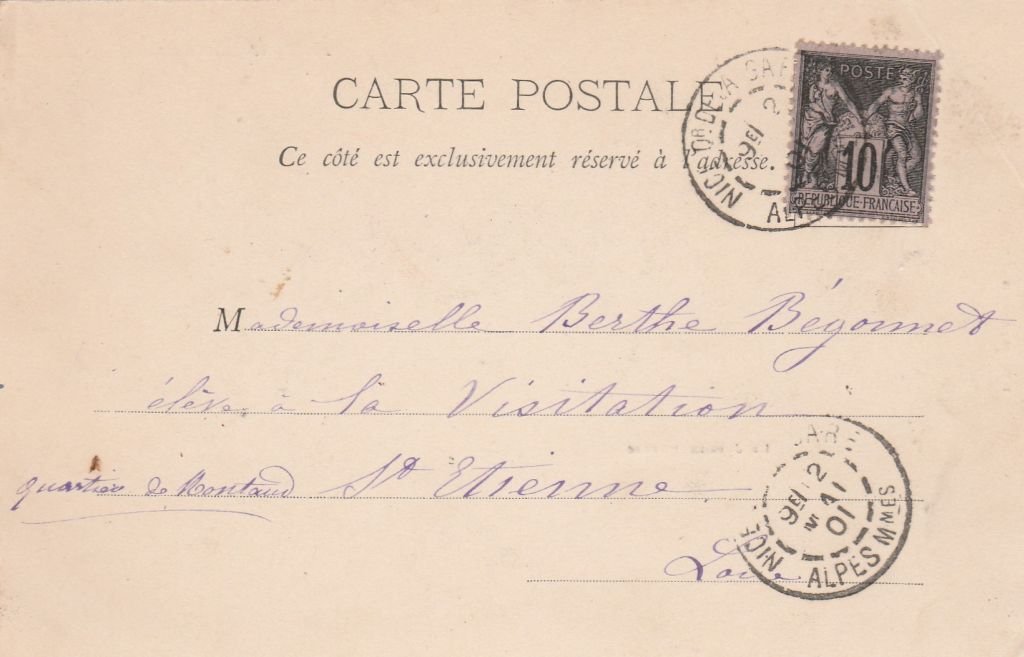 CARTE POSTALE
Ce côté est exclusivement réservé à l'adresse.
POSTE
10
REPUBLIQUE FRANCAISE
Mademoiselle Berthe Bégonnet
élève à la Visitation
quartier de Montaud St Etienne
Loire
NICE GARE
9E 2
MAI
01
ALPES MMES